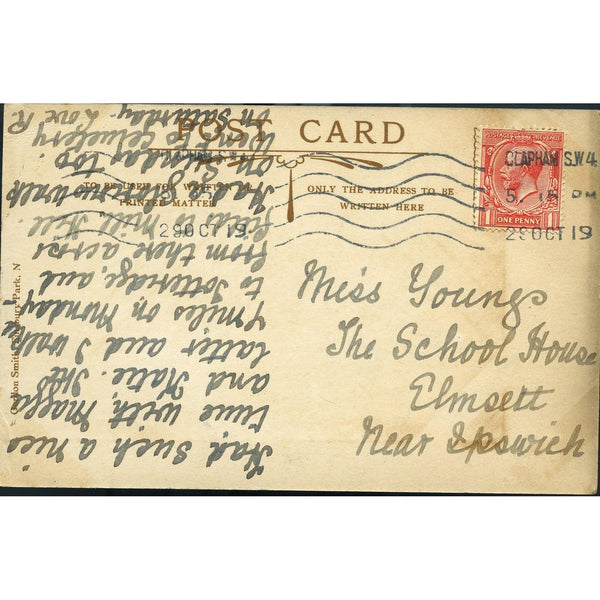 POST CARD
TO BE USED FOR WRITTEN OR
PRINTED MATTER
ONLY THE ADDRESS TO BE
WRITTEN HERE
POSTAGE REVENUE
ONE PENNY
CLAPHAM S.W.4
5. 15 PM
29 OCT 19
29 OCT 19
Miss Youngs
The School House
Elmsett
Near Ipswich
Had such a nice
time with Maggs
and Katie. The
latter and I walked
miles on Monday
to Totteridge, and
from there across
fields to Mill Hill.
Had a glorious walk
on Sunday too.
Went to cemetery
on Saturday. Love R.
Gordon Smith, Park, N